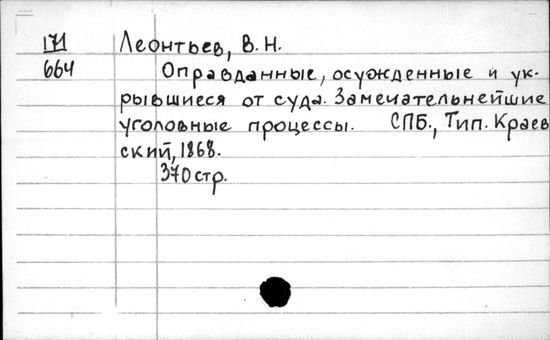 171 Леонтьев, В. Н.
664 Оправданные, осужденные и ук-
рывшиеся от суда. Замечательнейшие
уголовные процессы. СПБ., Тип. Краев
ский, 1868.
370 стр.